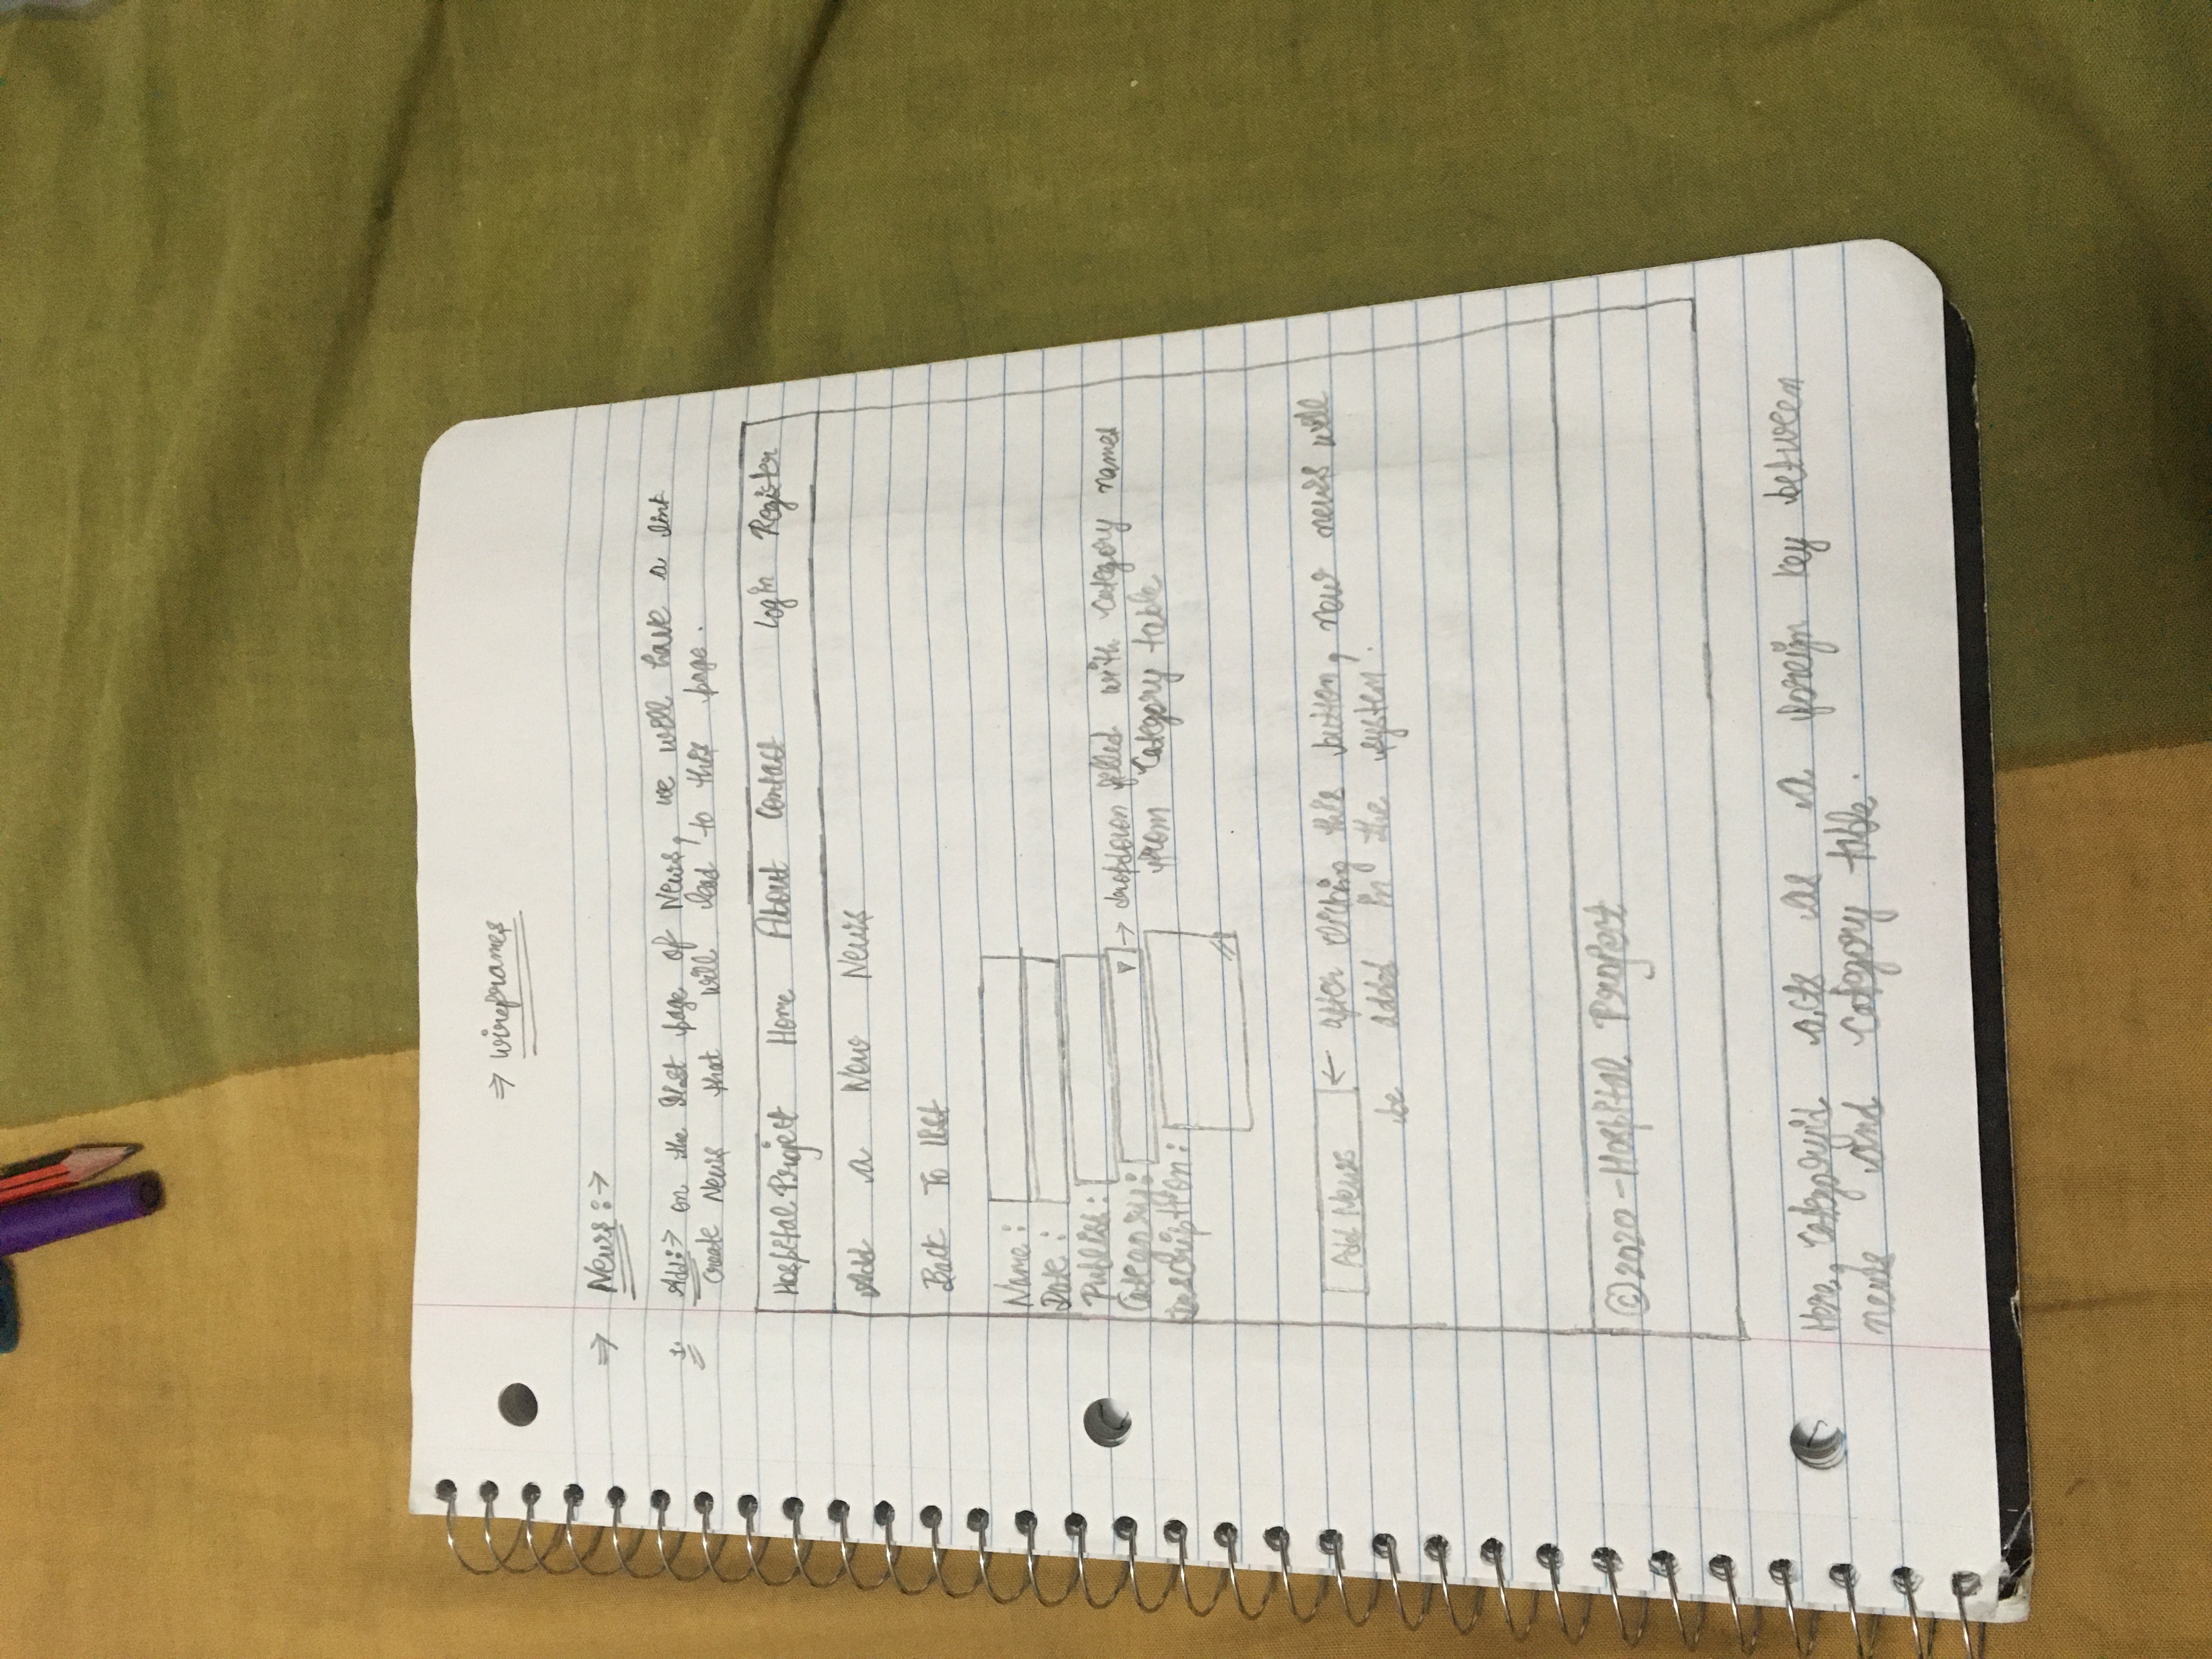 ⇒ wireframes
⇒ News:→
1. Add:→ on the list page of News, we will have a link
create News that will lead to this page.
Hospital Project Home About Contact Login Register
Add a New News
Back To list
Name:
Date:
Publish:
Category: ▽ → dropdown filled with category names
from Category table
Description:
Add News ← after clicking this button, new news will
be added in the system.
©2020-Hospital Project
Here, categoryid acts as a foreign key between
news and category table.